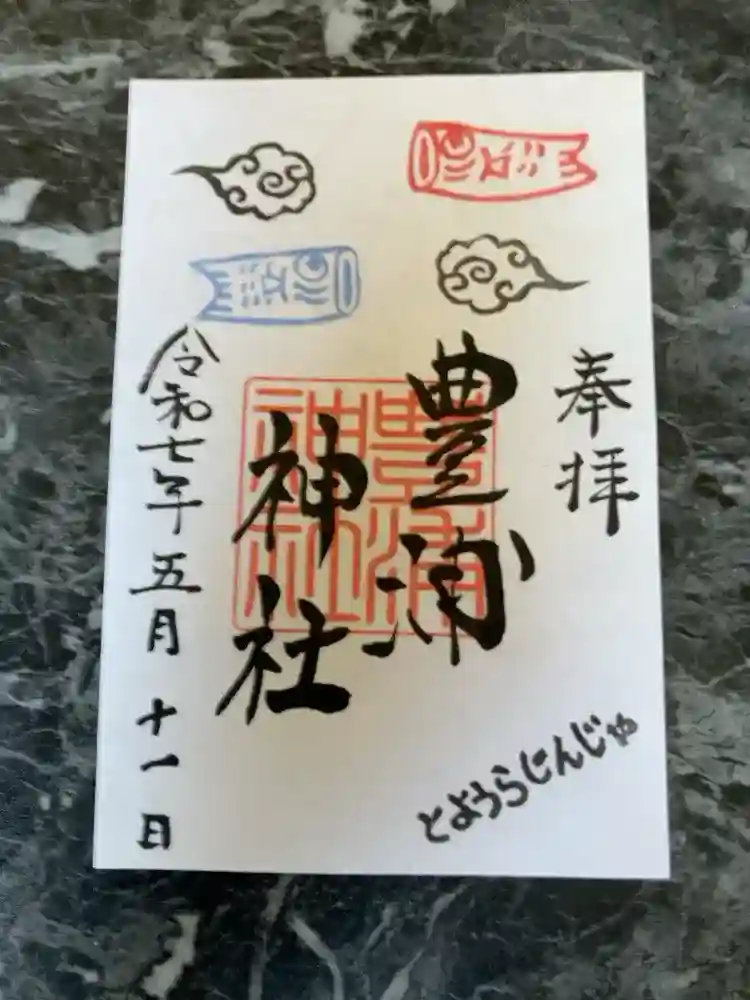 奉拝
豊浦
神社
豊浦
神社
令和七年五月十一日
とようらじんじゃ